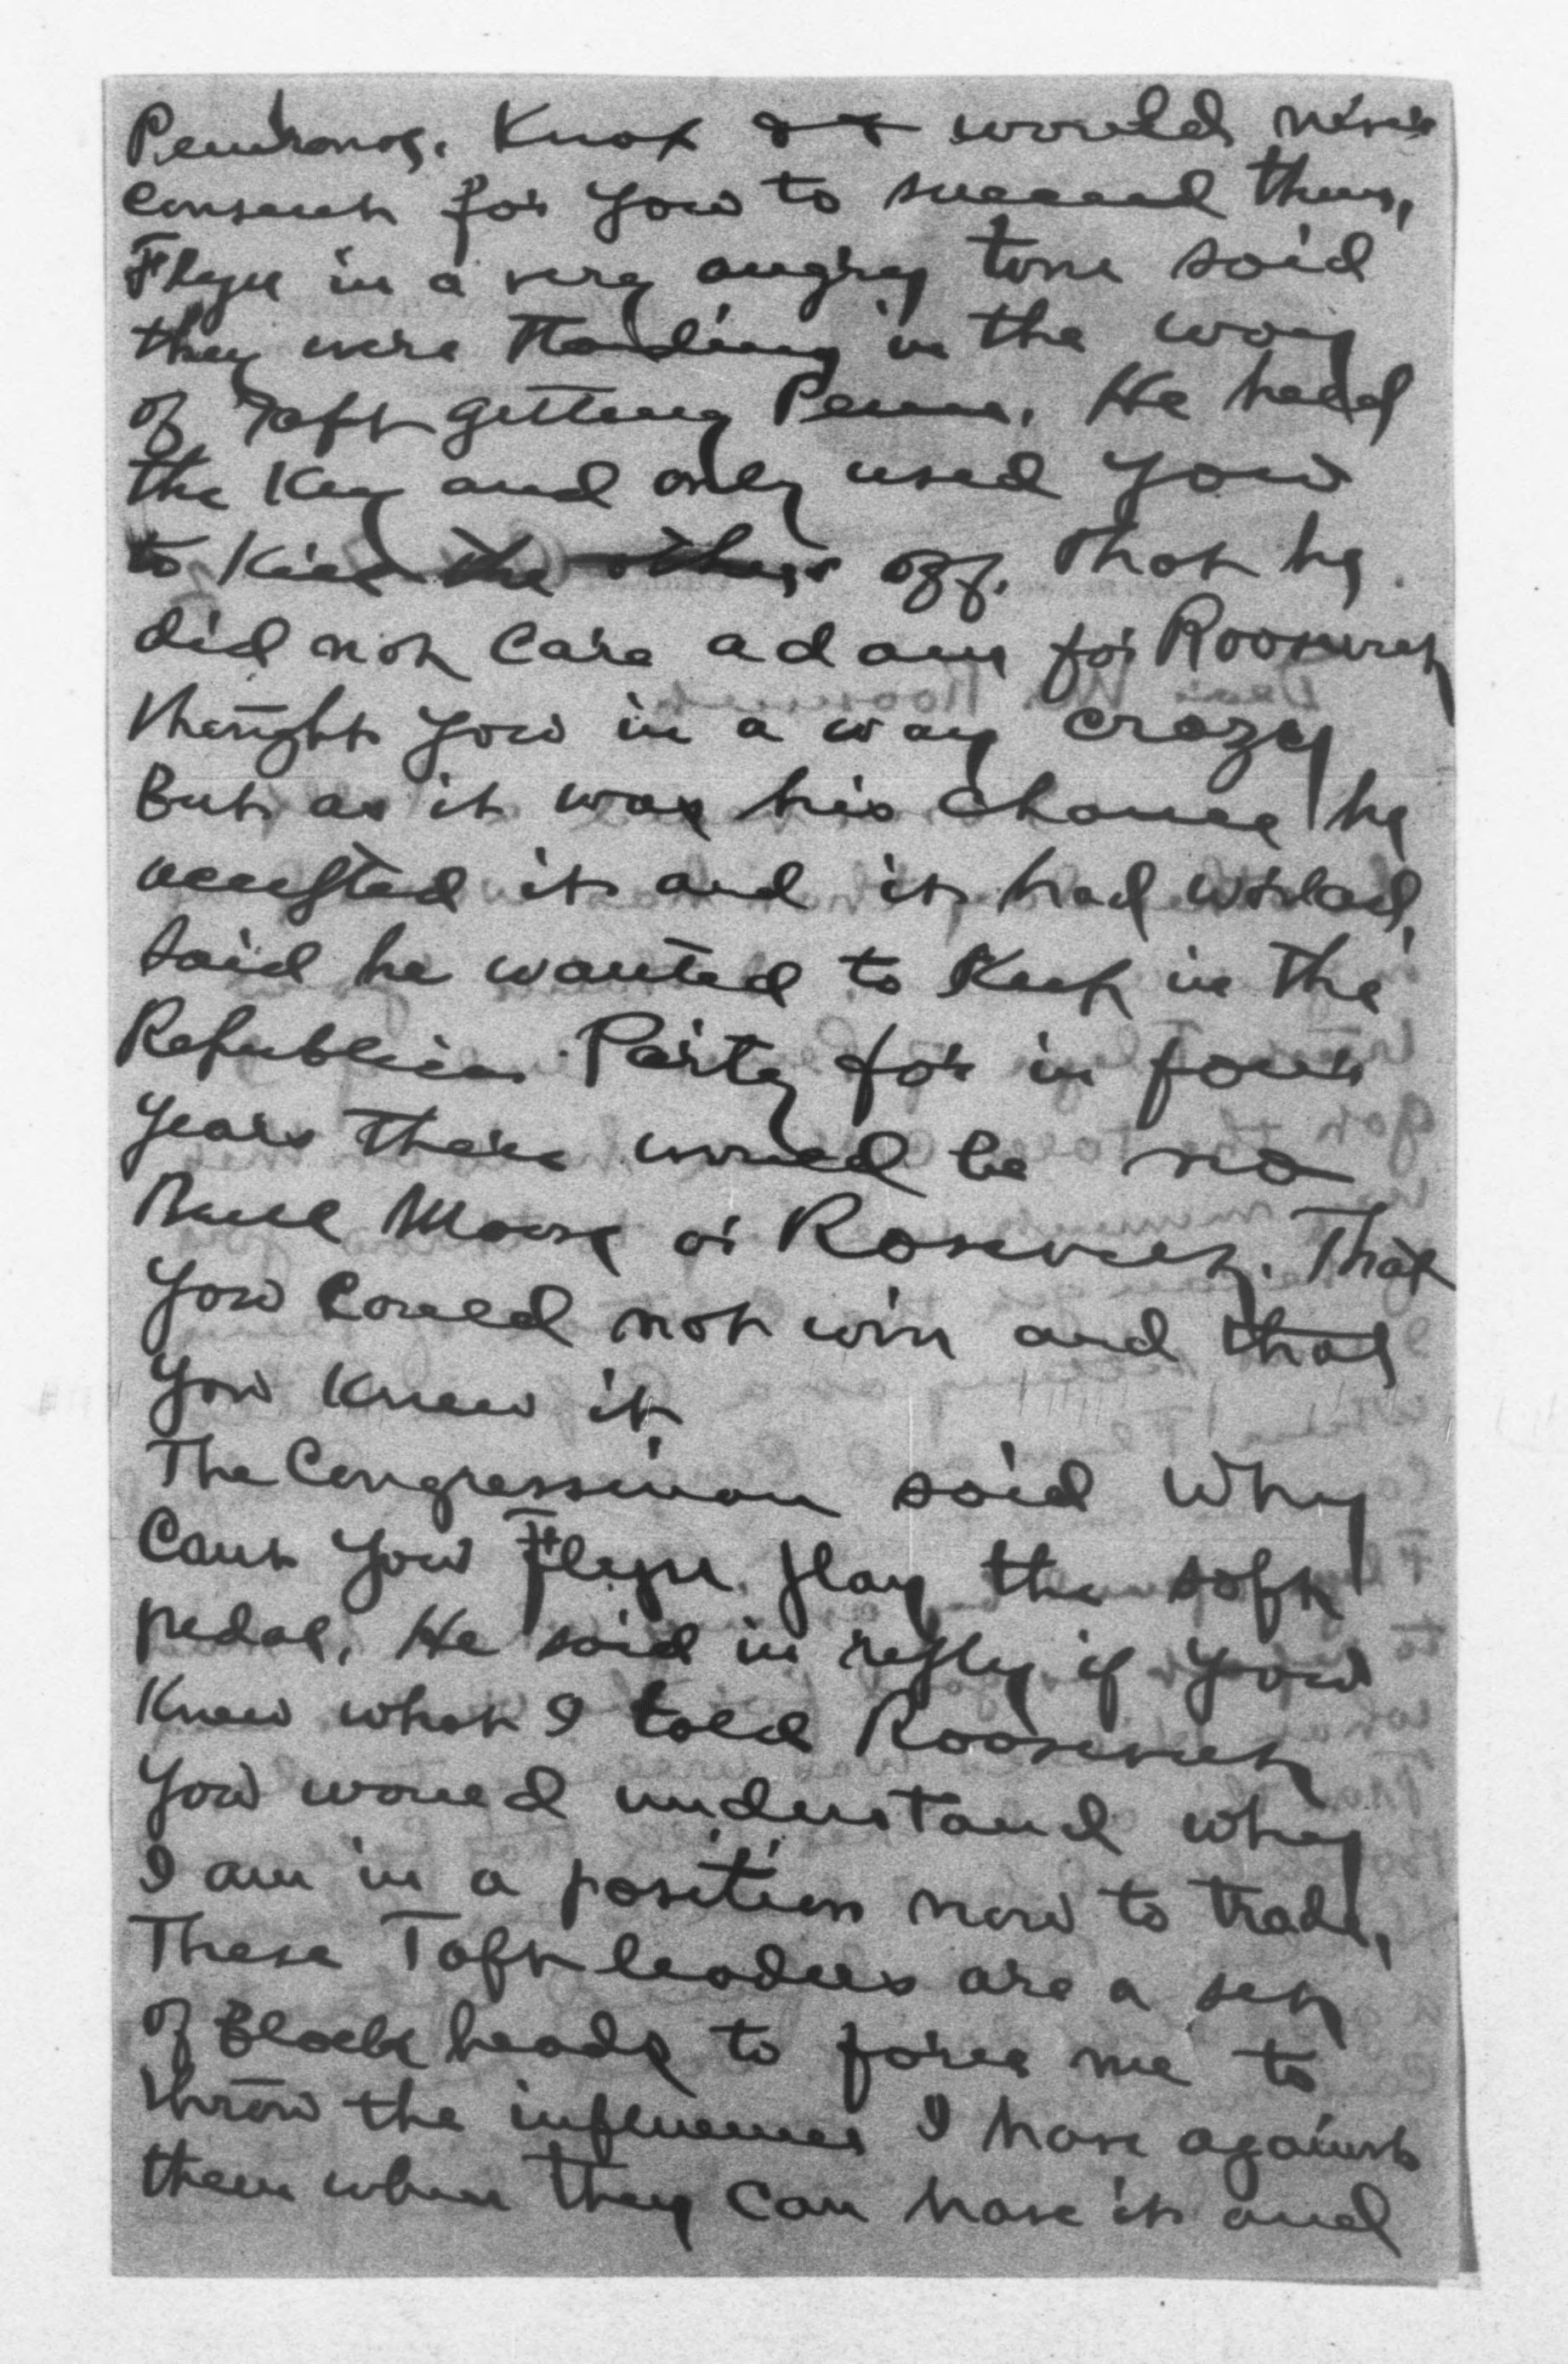 Penrose, Knox & would never
consent for you to succeed them,
Flynn in a very angry tone said
they were standing in the way
of Taft getting Penna. He held
the Key and only used you
to Kill the others off. That he
did not care a damn for Roosevelt
thought you in a way crazy
But as it was his chance he
accepted it and it had worked,
said he wanted to Keep in the
Republican Party for in four
years there would be no
Bull Moose or Rosevelt. That
you could not win and that
you knew it
The Congressman said Why
Cant you Flynn play the soft
pedal, He said in reply if you
Knew what I told Roosevelt
you would understand why
I am in a position now to trade,
These Taft leaders are a set
of Block heads to force me to
throw the influence I have against
them when they can have it and